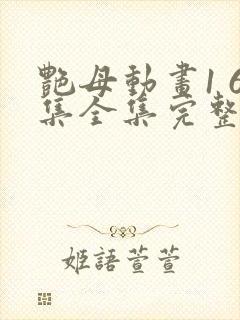 艷母動畫1 6
集全集完整
姬語萱萱